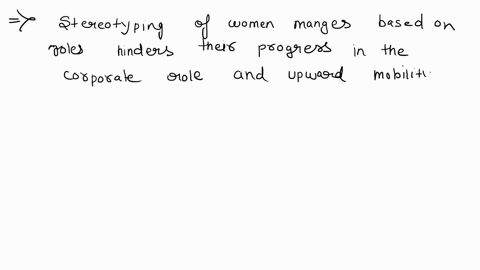 => Stereotyping of women manges based on
roles hinders their progress in the
corporate role and upward mobiliti